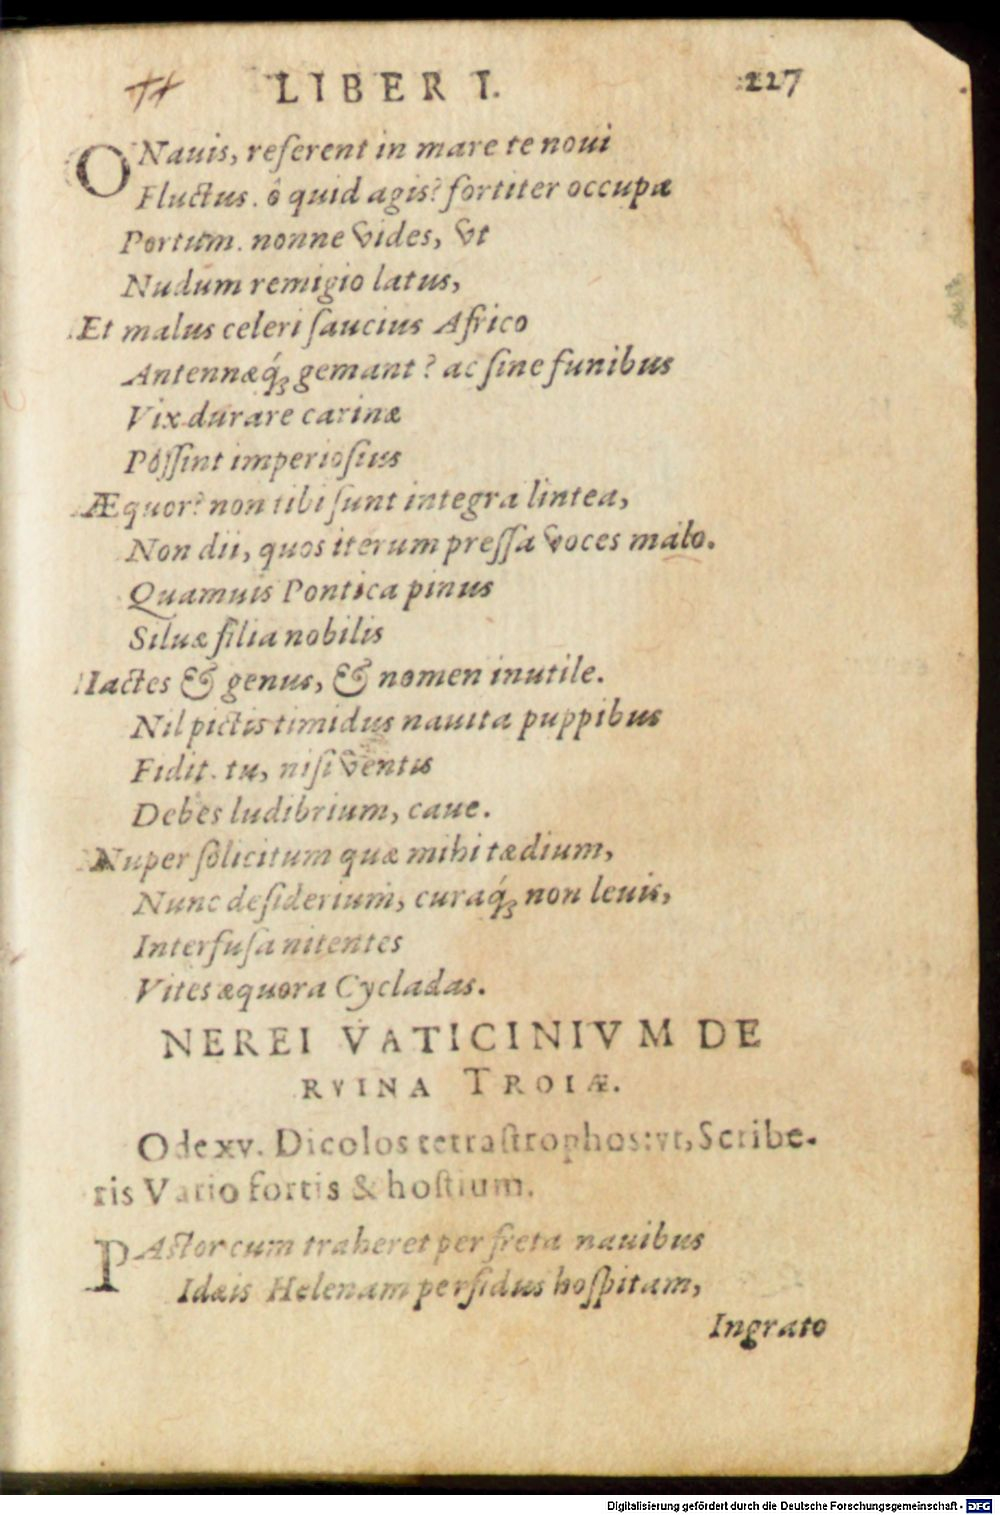 LIBER I. 217
O Nauis, referent in mare te noui
Fluctus. ô quid agis? fortiter occupa
Portum. nonne vides, vt
Nudum remigio latus,
Et malus celeri ſaucius Africo
Antennæq́; gemant? ac ſine funibus
Vix durare carinæ
Poſſint imperioſius
Æquor? non tibi ſunt integra lintea,
Non dii, quos iterum preſſa voces malo.
Quamuis Pontica pinus
Siluæ filia nobilis
Iactes & genus, & nomen inutile.
Nil pictis timidus nauita puppibus
Fidit. tu, niſi ventis
Debes ludibrium, caue.
Nuper ſolicitum quæ mihi tædium,
Nunc deſiderium, curaq́; non leuis,
Interfuſa nitentes
Vites æquora Cycladas.
NEREI VATICINIVM DE
RVINA TROIÆ.
Ode xv. Dicolos tetraſtrophos: vt, Scribe-
ris Vario fortis & hoſtium.
PAſtor cum traheret per freta nauibus
Idæis Helenam perfidus hoſpitam,
Ingrato
Digitalisierung gefördert durch die Deutsche Forschungsgemeinschaft - DFG